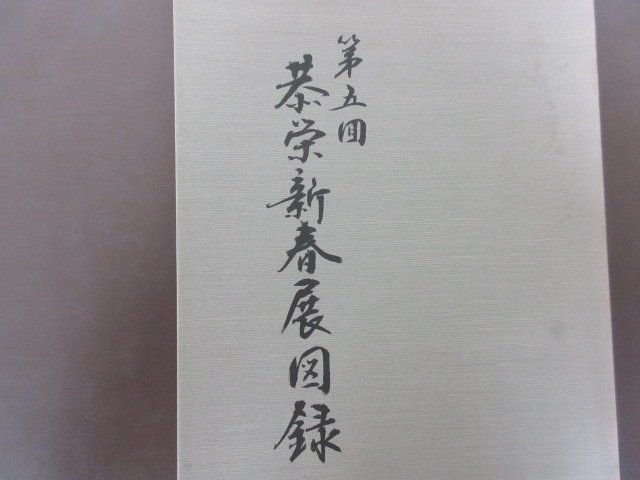 第五回
恭栄新春展図録